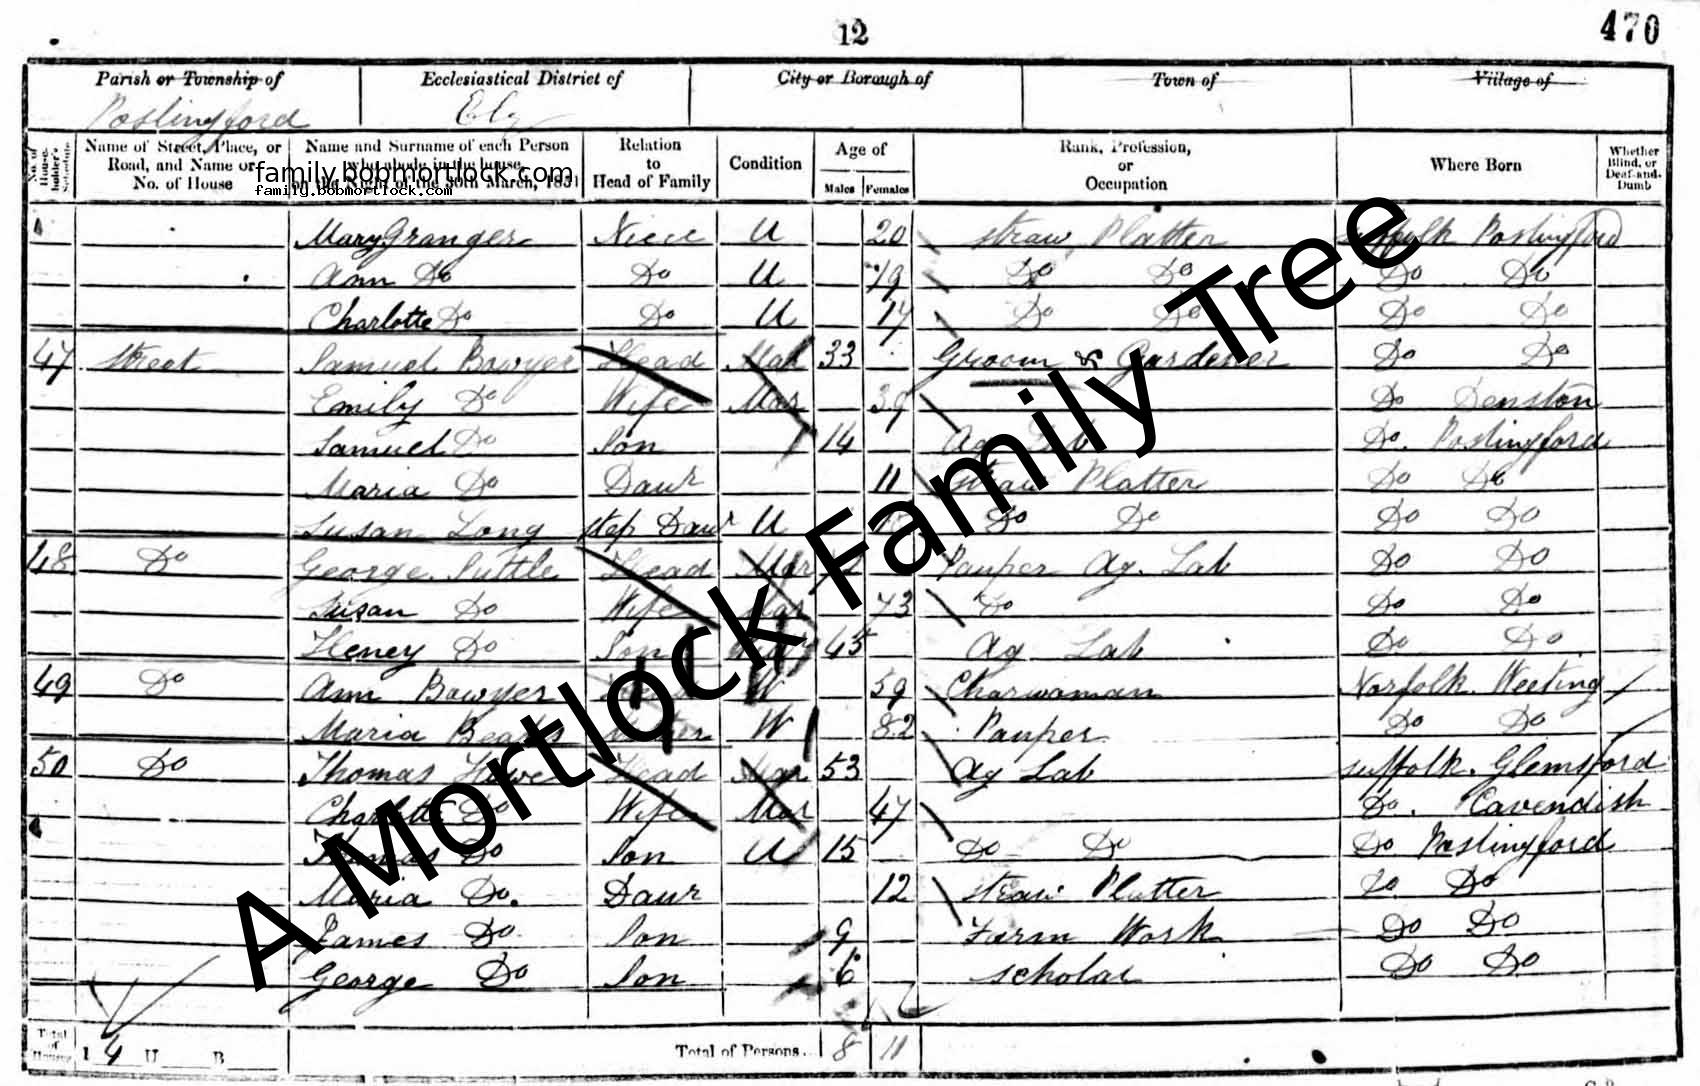 12
470
Parish or Township of Ecclesiastical District of City or Borough of Town of Village of
Poslingford Ely
No. of House-holder's Schedule Name of Street, Place, or Road, and Name or No. of House Name and Surname of each Person who abode in the house, on the Night of the 30th March, 1851 Relation to Head of Family Condition Age of Males Females Rank, Profession, or Occupation Where Born Whether Blind, or Deaf-and-Dumb
family.bobmortlock.com
family.bobmortlock.com
Mary Granger Niece U 20 Straw Platter Suffolk Poslingford
Ann Do Do U 19 Do Do Do Do
Charlotte Do Do U 17 Do Do Do Do
47 Street Samuel Bowyer Head Mar 33 Groom & Gardener Do Do
Emily Do Wife Mar 39 Do Denston
Samuel Do Son 14 Ag Lab Do. Poslingford
Maria Do Daur 11 Straw Platter Do Do
Susan Long Step Daur U Do Do Do Do
48 Do George Suttle Head Mar Pauper Ag. Lab Do Do
Susan Do Wife Mar 73 Do Do Do
Henry Do Son 45 Ag Lab Do Do
49 Do Ann Bowyer W 59 Charwoman Norfolk. Weeting
Maria Mother W 82 Pauper Do Do
50 Do Thomas Head Mar 53 Ag Lab Suffolk. Glemsford
Charlotte Do Wife Mar 47 Do. Cavendish
Thomas Do Son U 15 Do Do Do Poslingford
Maria Do. Daur 12 Straw Platter Do Do
James Do Son 9 Farm Work Do Do
George Do Son 6 Scholar Do Do
Total of Houses 1 4 U B Total of Persons... 8 11
A Mortlock Family Tree